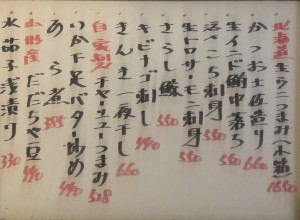 北海道生うにつまみ(木箱) 1650
かつお土佐造り 660
生インド鮪中落ち 550
活つぶ刺身 550
生トロサーモン刺身 550
さらし鯨 550
キビナゴ刺し
きんき一夜干し 660
自家製チャーシューつまみ 528
いか下足バター炒め 490
あら煮 385
山形産だだちゃ豆 490
水茄子浅漬り 330